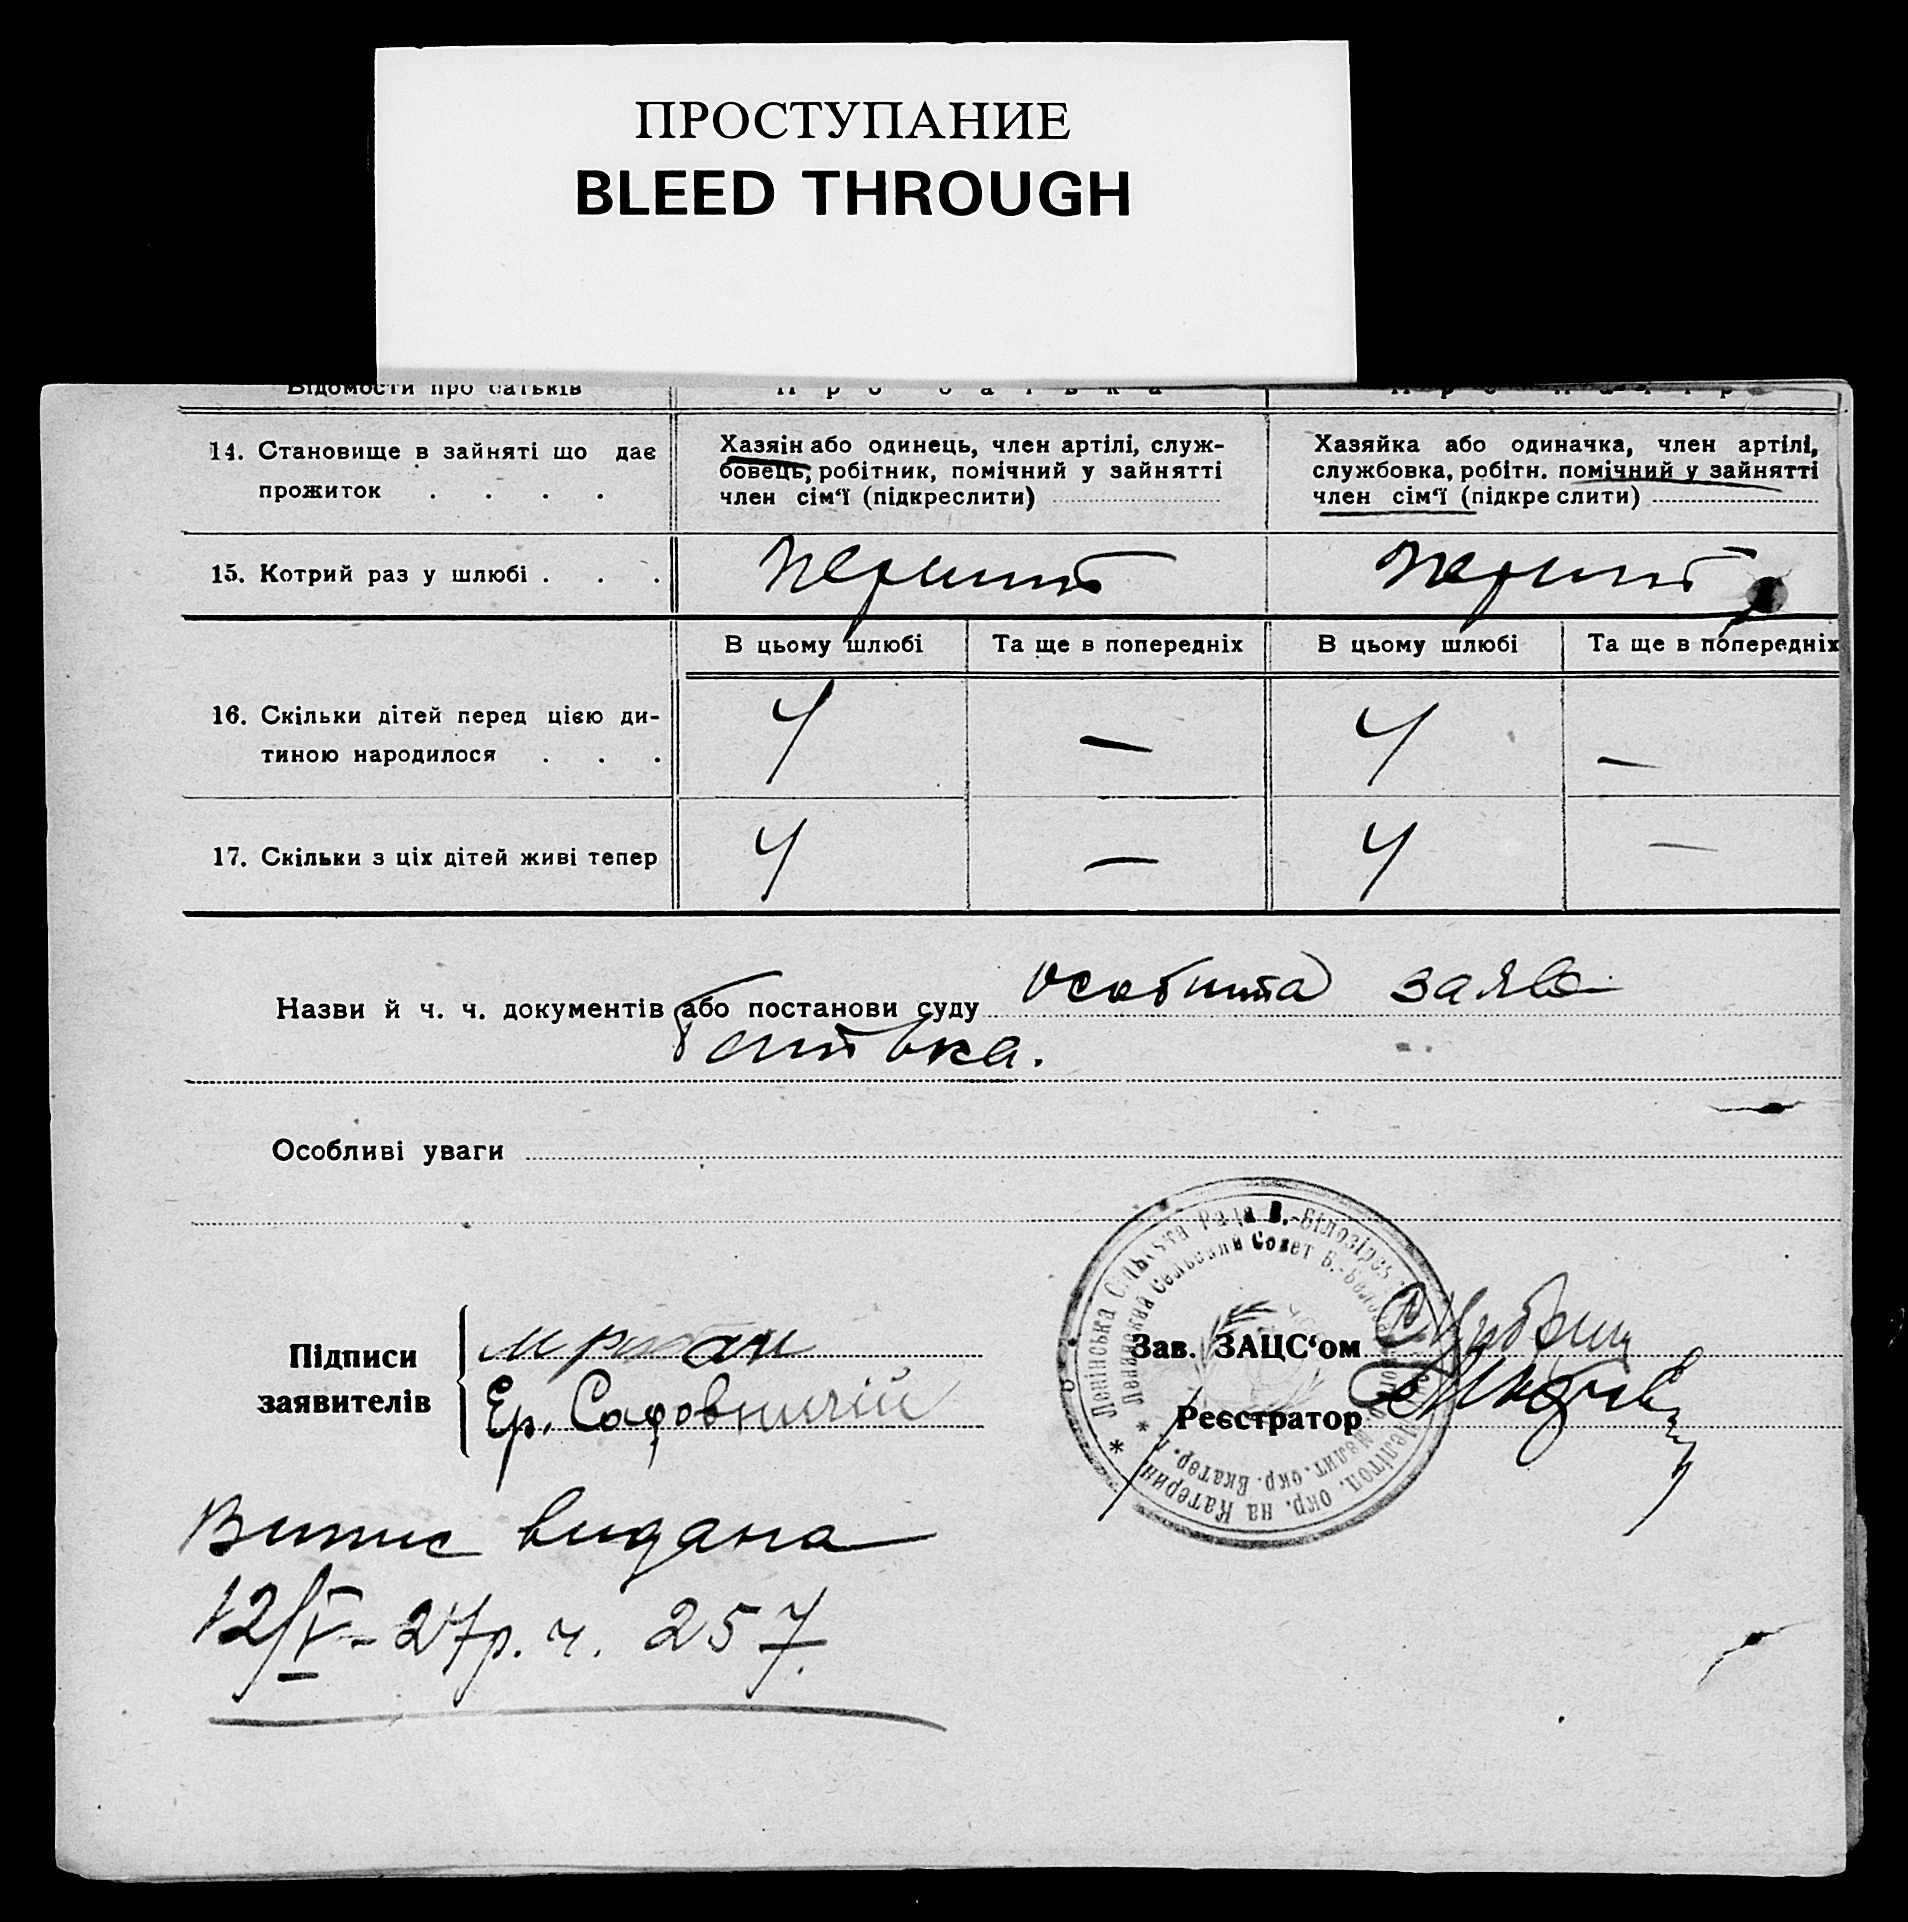 ПРОСТУПАНИЕ
BLEED THROUGH
Відомости про батьків
Про батька
Про матір
14. Становище в зайняті що дає
прожиток . . . .
Хазяін або одинець, член артілі, служ-
бовець, робітник, помічний у зайнятті
член сім‘ї (підкреслити)
Хазяйка або одиначка, член артілі,
службовка, робітн. помічний у зайнятті
член сім‘ї (підкреслити)
15. Котрий раз у шлюбі . . .
перший
перший
В цьому шлюбі
Та ще в попередніх
В цьому шлюбі
Та ще в попередніх
16. Скільки дітей перед цією ди-
тиною народилося . . .
4
—
4
—
17. Скільки з ціх дітей живі тепер
4
—
4
—
Назви й ч. ч. документів або постанови суду особита заява
батька.
Особливі уваги
Підписи
заявителів
Ер. Садовничій
Зав. ЗАЦС‘ом
Реєстратор
Ленінська Сільська Рада В.-Білозірс
Мелітоп. окр. на Катерин
Ленинский Сельский Совет Б.-Бело
Мелит. окр. Екатер. г.
Випис видана
12/V-27р. ч. 257.